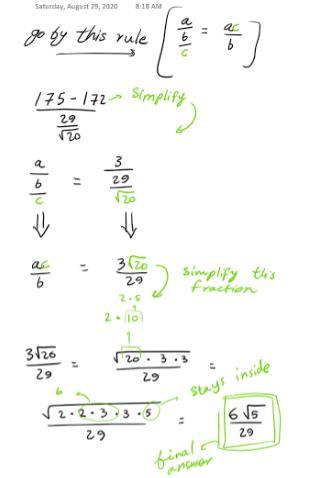 Saturday, August 29, 2020 8:18 AM
go by this rule (a/(b/c) = ac/b)
(175 - 172)/(29/√20) → Simplify
a/(b/c) = 3/(29/√20)
⇓ ⇓
ac/b = 3√20/29 simplify this fraction
2·5
2·10
3√20/29 = √(20·3·3)/29 =
6 stays inside
√(2·2·3·3·5)/29 = 6√5/29
final answer